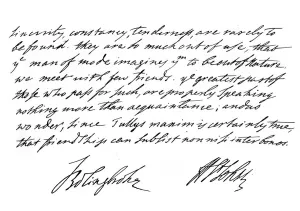 Sincerity, constancy, tenderness, are rarely to
be found. they are so much out of use, that
yᵉ man of mode imagines yᵐ to be out of nature.
we meet with few friends. yᵉ greatest part of
those who pass for such, are properly speaking
nothing more than acquaintance, and no
wonder, since Tullys maxim is certainly true,
that friendship can subsist non nisi inter bonos.
Bolingbroke